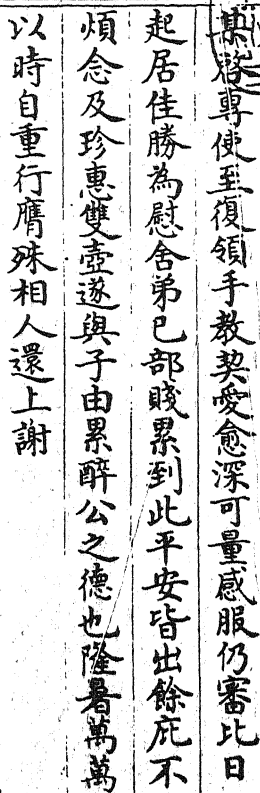 某啓專使至復領手教契愛愈深可量感服仍審比日
起居佳勝為慰舍弟已部賤累到此平安皆出餘庇不
煩念及珍惠雙壺遂與子由累醉公之德也隆暑萬萬
以時自重行膺殊相人還上謝